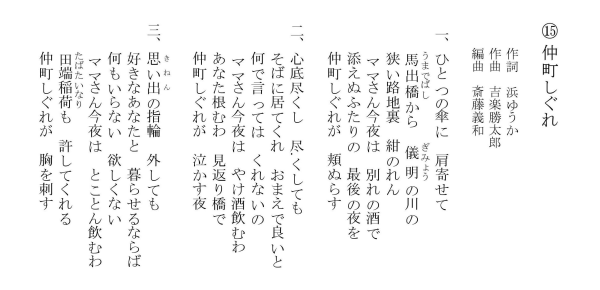 ⑮ 仲町しぐれ
作詞　浜ゆうか
作曲　吉楽勝太郎
編曲　斎藤義和
一、ひとつの傘に　肩寄せて
馬出橋から　儀明の川の
うまでばし　ぎみよう
狭い路地裏　紺のれん
ママさん今夜は　別れの酒で
添えぬふたりの　最後の夜を
仲町しぐれが　頬ぬらす
二、心底尽くし　尽くしても
そばに居てくれ　おまえで良いと
何で言っては　くれないの
ママさん今夜は　やけ酒飲むわ
あなた根むわ　見返り橋で
仲町しぐれが　泣かす夜
三、思い出の指輪　外しても
きねん
好きなあなたと　暮らせるならば
何もいらない　欲しくない
ママさん今夜は　とことん飲むわ
田端稲荷も　許してくれる
たばたいなり
仲町しぐれが　胸を刺す